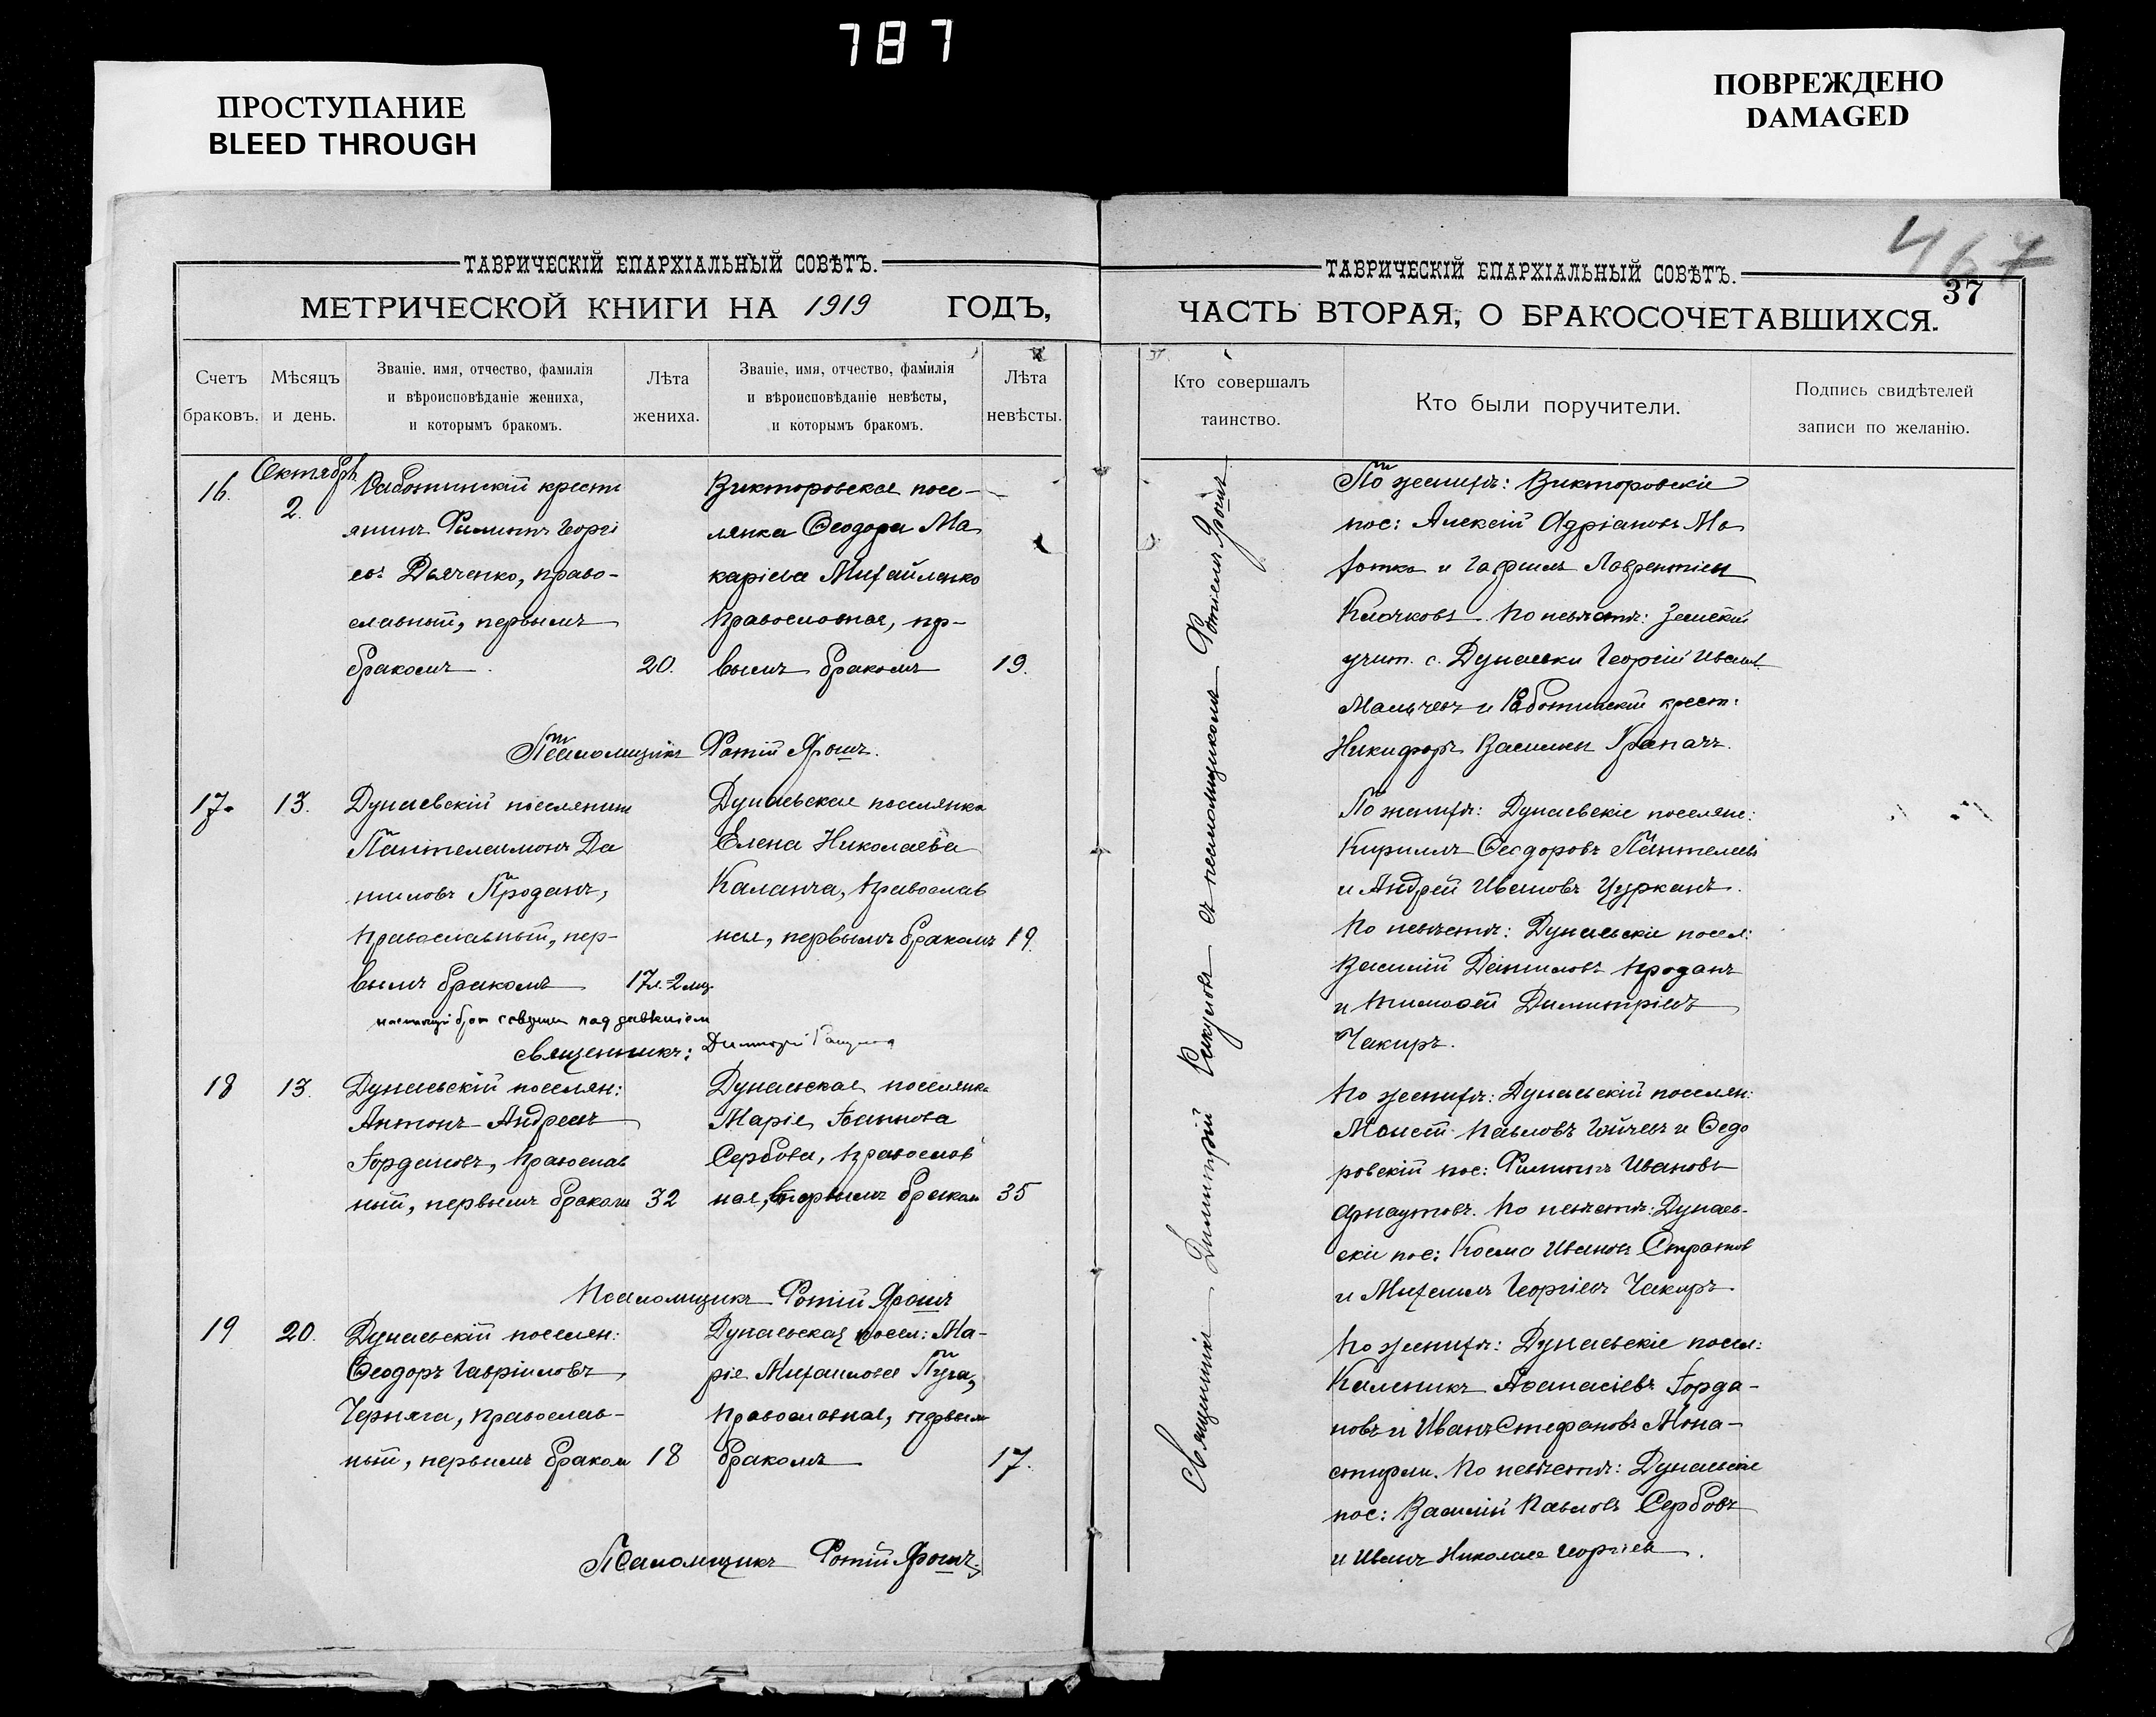 787
ПРОСТУПАНИЕ
BLEED THROUGH
ПОВРЕЖДЕНО
DAMAGED
467
37
ТАВРИЧЕСКІЙ ЕПАРХІАЛЬНЫЙ СОВѢТЪ.
МЕТРИЧЕСКОЙ КНИГИ НА 1919 ГОДЪ,
Счетъ
браковъ.
Мѣсяцъ
и день.
Званіе, имя, отчество, фамилія
и вѣроисповѣданіе жениха,
и которымъ бракомъ.
Лѣта
жениха.
Званіе, имя, отчество, фамилія
и вѣроисповѣданіе невѣсты,
и которымъ бракомъ.
Лѣта
невѣсты.
16.
Октябрь
2.
Работинскій крестья
янинъ Филиппъ Георгі
евъ Дьяченко, право-
славный, первымъ
бракомъ.
20.
Викторовская посе-
лянка Ѳеодора Ма
каріева Михайленко
православная, пер-
вымъ бракомъ
19.
Псаломщикъ Фотій Ярошъ.
17.
13.
Дунаевскій поселянинъ
Пантелеимонъ Да
ниловъ Проданъ,
православный, пер-
вымъ бракомъ
17л. 2 мц.
Дунаевская поселянка
Елена Николаева
Каланча, православ
ная, первымъ бракомъ
19.
Священникъ: Димитрій
18
13.
Дунаевскій поселян:
Антонъ Андреевъ
Іордановъ, православ
ный, первымъ бракомъ
32
Дунаевская поселянка
Марія Іоаннова
Сербова, православ
ная, вторымъ бракомъ
35
Псаломщикъ Фотій Ярошъ
19
20.
Дунаевскій поселян:
Ѳеодоръ Гавріиловъ
Черняга, православ-
ный, первымъ бракомъ
18
Дунаевская посел: Ма-
рія Михаилова Пуга,
православная, первымъ
бракомъ
17.
Псаломщикъ Фотій Ярошъ.
ТАВРИЧЕСКІЙ ЕПАРХІАЛЬНЫЙ СОВѢТЪ.
ЧАСТЬ ВТОРАЯ, О БРАКОСОЧЕТАВШИХСЯ.
Кто совершалъ
таинство.
Кто были поручители.
Подпись свидѣтелей
записи по желанію.
Священникъ Димитрій съ псаломщикомъ Фотіемъ Ярошъ
По женихѣ: Викторовскіе
пос: Алексій Адріановъ
и Лаврентіевъ
Клочковъ. По невѣстѣ: Земскій
учит. с. Дунаевки Георгій Иванов
Мальчевъ и Работинскій крест:
Никифоръ Васильевъ
По женихѣ: Дунаевскіе поселяне:
Кириллъ Ѳеодоровъ Пантелеевъ
и Андрей Ивановъ Цурканъ.
По невѣстѣ: Дунаевскіе посел:
Василій Даниловъ Проданъ
и Тимоѳей Димитріевъ
Чакиръ.
По женихѣ: Дунаевскій поселян:
Моисей Павловъ Гойчевъ и Ѳедо
ровскій пос: Филиппъ Ивановъ
Арнаутовъ. По невѣстѣ: Дунаев-
скіе пос: Косма Ивановъ Стратов
и Михаилъ Георгіевъ Чакиръ
По женихѣ: Дунаевскіе посел:
Калиникъ Аѳанасіевъ Іорда-
новъ и Иванъ Стефановъ Мона-
стырли. По невѣстѣ: Дунаевскіе
пос: Василій Павловъ Сербовъ
и Иванъ Николаев Георгіев.